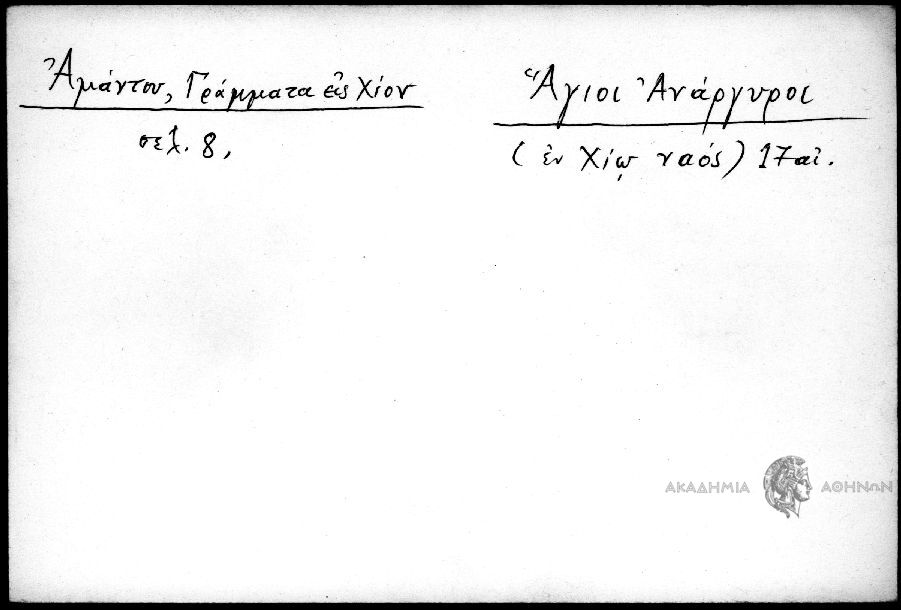 Ἀμάντου, Γράμματα εἰς Χίον
σελ. 8,
Ἅγιοι Ἀνάργυροι
(ἐν Χίῳ ναός) 17 αἰ.
ΑΚΑΔΗΜΙΑ ΑΘΗΝΩΝ